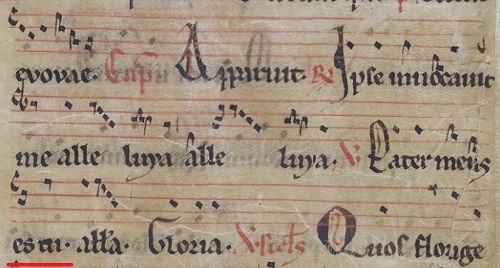 evovae. Cap̄. Apparuit. R. Ipse invocavit
me alle luya alle luya. V. Pater meus
es tu. all'a. Gloria. V. Quos florige